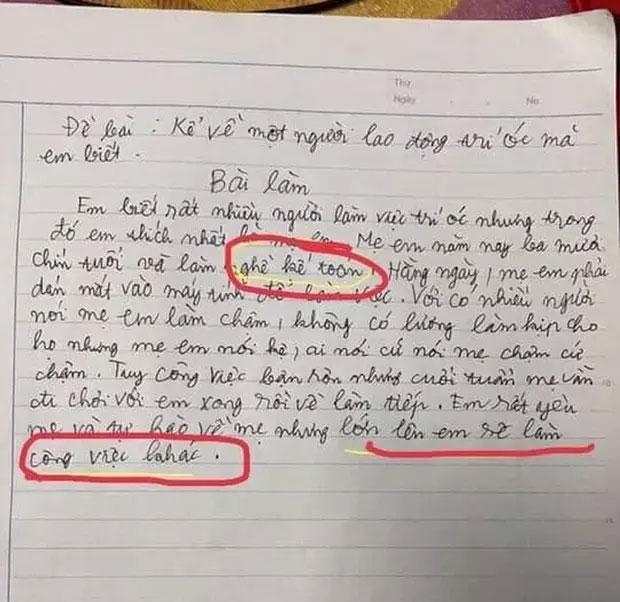 Thứ
Ngày
No.
Đề bài : Kể về một người lao động trí óc mà
em biết.
Bài làm
Em biết rất nhiều người làm việc trí óc nhưng trong
đó em thích nhất là mẹ em. Mẹ em năm nay ba mươi
chín tuổi và làm nghề kế toán. Hằng ngày, mẹ em phải
dán mắt vào máy tính để làm việc. Với có nhiều người
nói mẹ em làm chậm, không có lương làm kịp cho
họ nhưng mẹ em nói kệ, ai nói cứ nói mẹ chậm cứ
chậm. Tuy công việc bận rộn nhưng cuối tuần mẹ vẫn
đi chơi với em xong rồi về làm tiếp. Em rất yêu
mẹ và tự hào về mẹ nhưng lớn lên em sẽ làm
công việc khác.